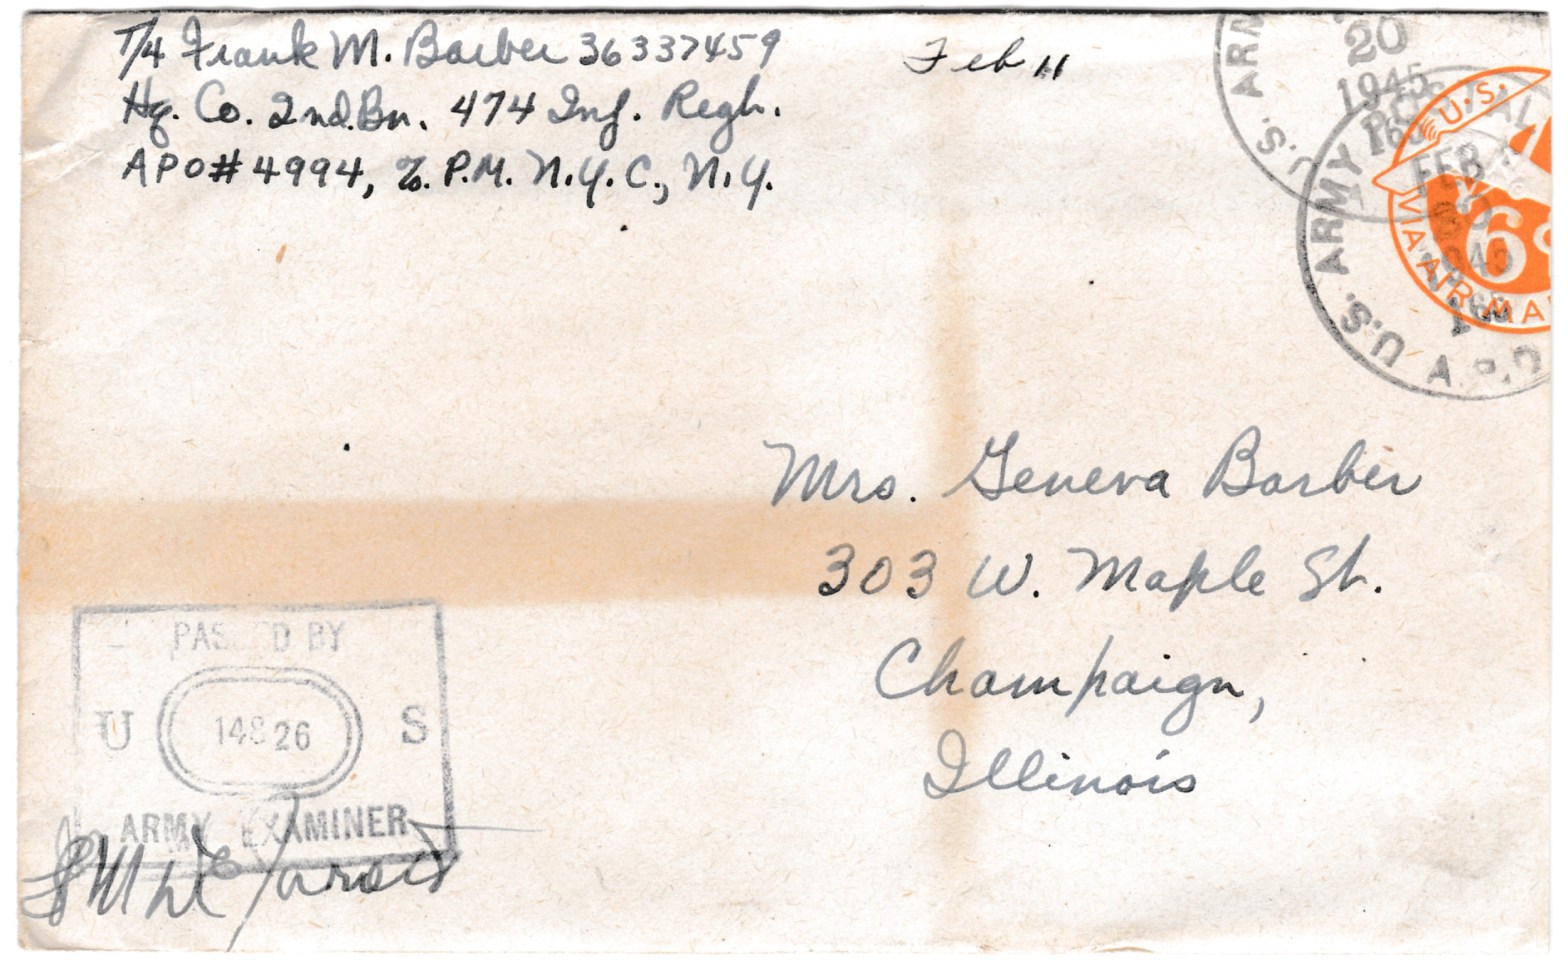 T/4 Frank M. Barber 36337459
Feb 11
Hq. Co. 2nd. Bn. 474 Inf. Regt.
APO# 4994, % P.M. N.Y.C., N.Y.
U.S. ARMY
20
1945
POSTAL
U.S. ARMY
FEB
A.P.O.
U.S.
6¢
VIA AIR MA
Mrs. Geneva Barber
303 W. Maple St.
Champaign,
Illinois
PASSED BY
U 14826 S
ARMY EXAMINER